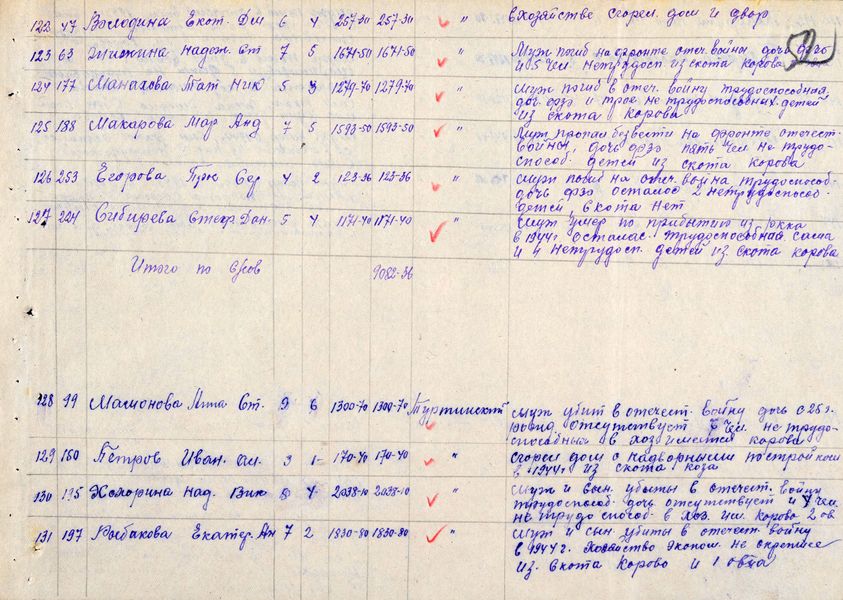 122 47 Володина Екат. Дм 6 4 257-30 257-30 " в хозяйстве сгорел дом и двор
123 63 Надеж. Ст 7 5 1671-50 1671-50 " Муж погиб на фронте отеч. войны дочь
и 5 чел. нетрудосп из скота корова
124 177 Манахова Тат Ник 5 3 1279-70 1279-70 " Муж погиб в отеч. войну трудоспособная
доч. и трое не трудоспособных детей
из скота корова
125 188 Макарова Мар Анд 7 5 1593-50 1593-50 " Муж пропал безвести на фронте отечест-
войны, дочь пять чел. не трудо-
способ. детей из скота корова
126 253 Егорова Сер 4 2 123-36 123-36 " муж погиб на отеч. война трудоспособ-
дочь осталос 2 нетрудоспособ-
детей, скота нет
127 224 Сибирева Степ. Дан. 5 4 1171-40 1171-40 " Муж умер по прибытию из ркка
в 1944г осталас. трудоспособная сама
и 4 нетрудосп. детей из скота корова
Итого по с/сов 9082-36
128 99 Мамонова Анна Ст. 9 6 1300-70 1300-70 Туртинский муж убит в отечест. войну дочь с 25 г.
отсутствует чел. не трудо-
способных в хоз. имеется корова
129 150 Петров Иван. 3 1 170-40 170-40 " Сгорел дом с надворными постройком
в 1944г из скота коза
130 195 Над. Вик 8 4 2038-10 2038-10 " Муж и сын убиты в отечест. войну
трудоспособ. дочь отсутствует и 4 чел
не трудоспособ. в хоз. им. корова 2 ов
131 197 Рыбакова Екатер. Ан 7 2 1830-80 1830-80 " Муж и сын убиты в отечест войну
в 1944г. Хозяйство эконом. не
из. скота корово и 1 овца